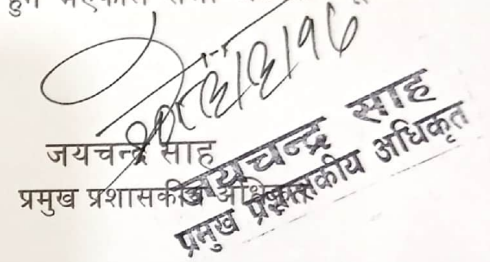 जयचन्द्र साह
प्रमुख प्रशासकीय
जयचन्द्र साह
प्रमुख प्रशासकीय अधिकृत